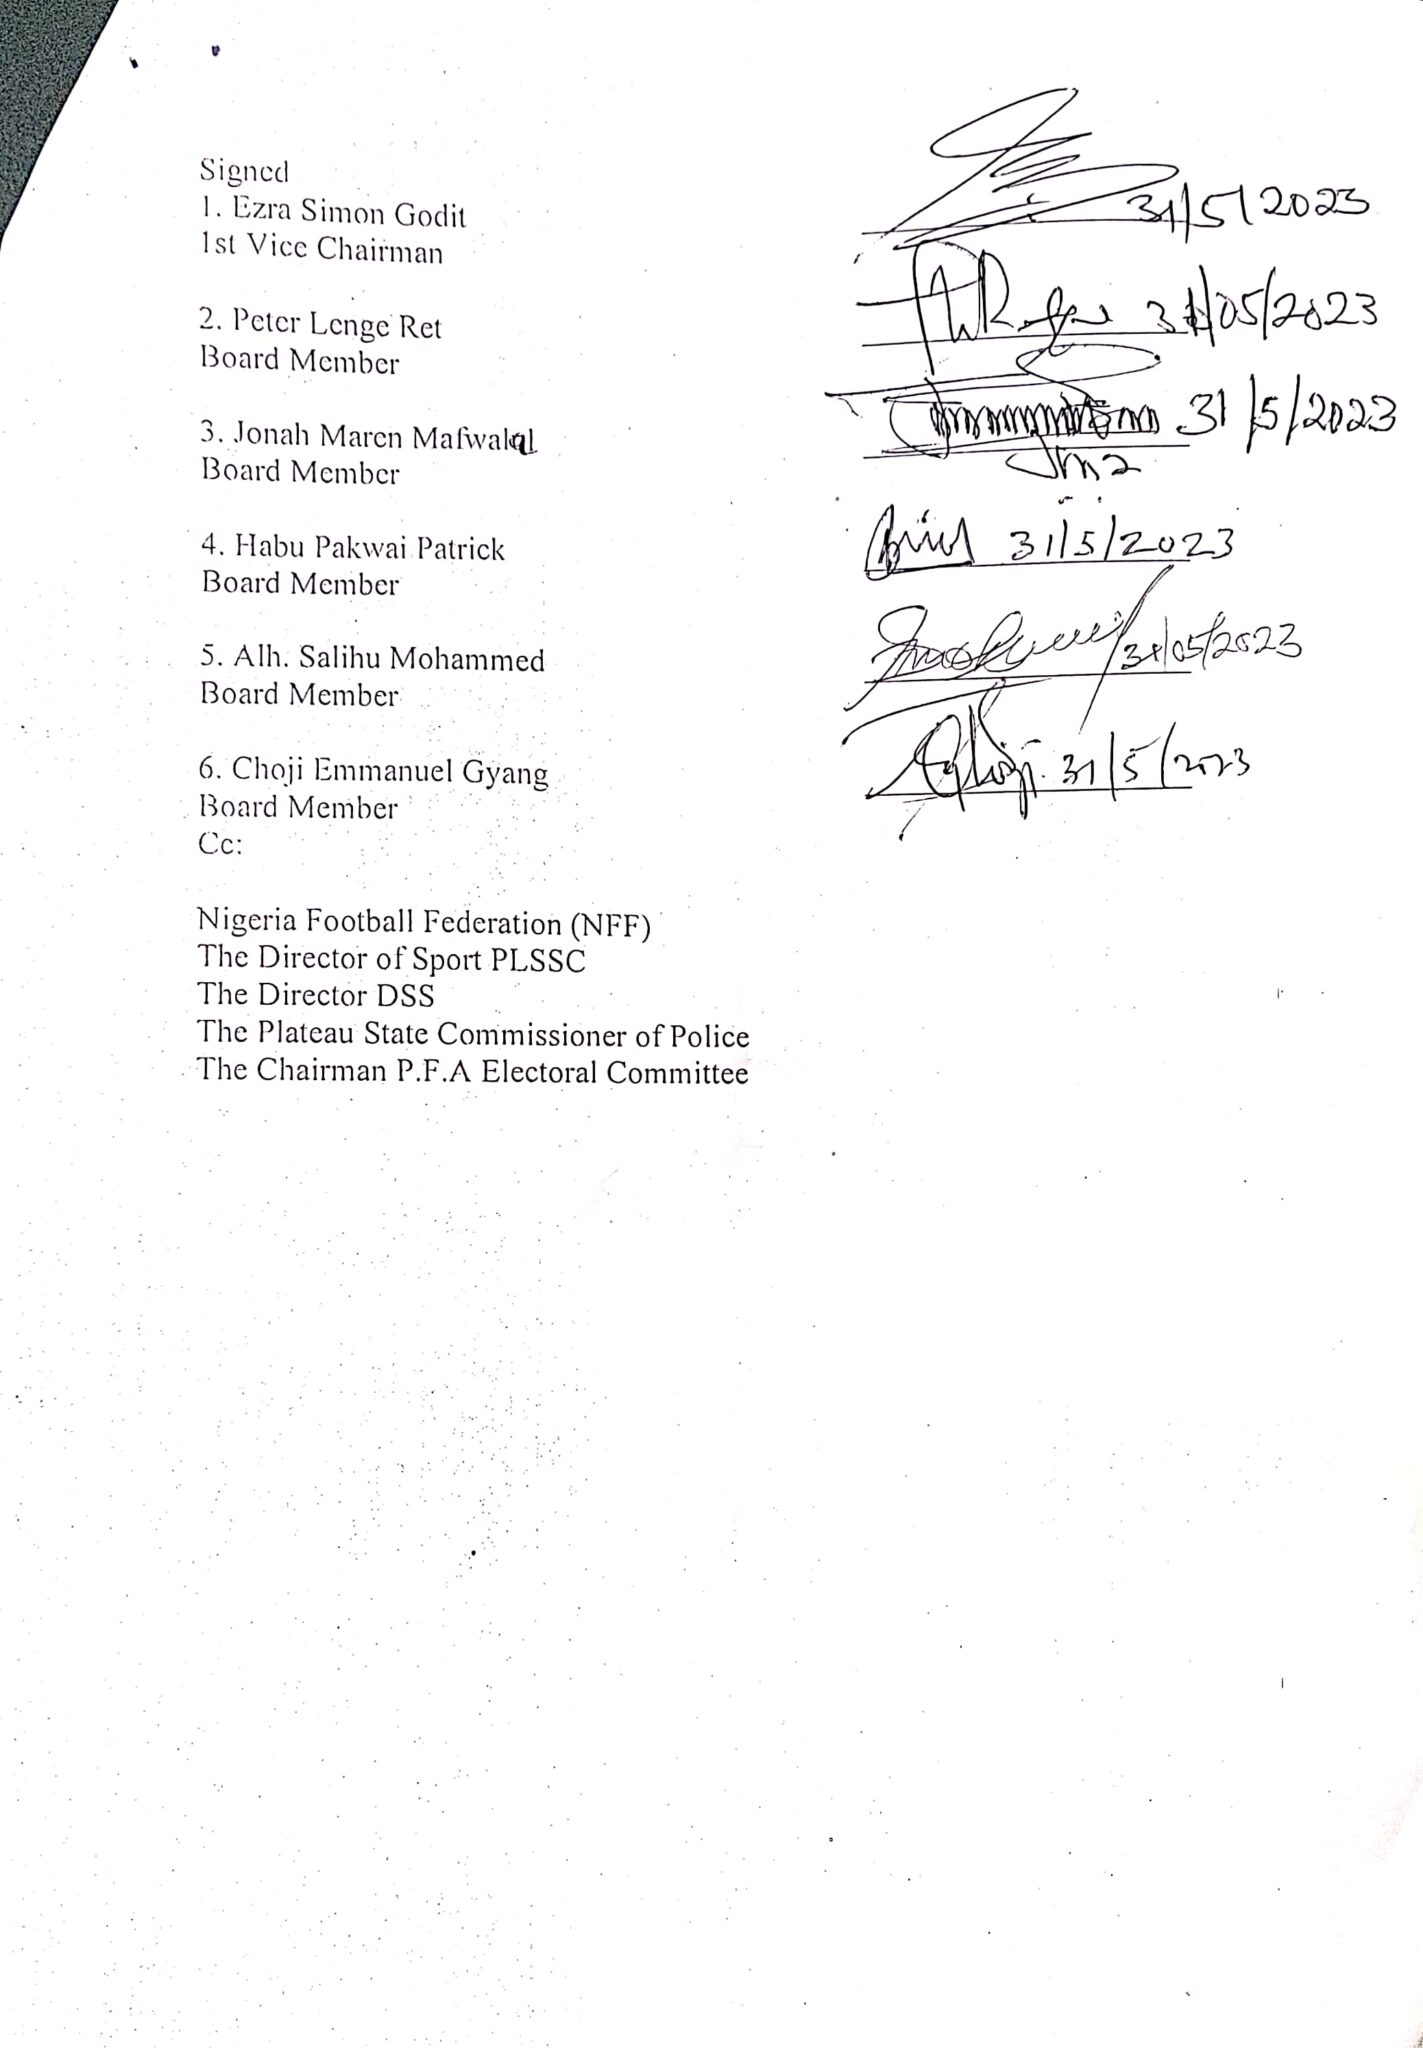 Signed
1. Ezra Simon Godit
31/5/2023
1st Vice Chairman
2. Peter Lenge Ret
31/05/2023
Board Member
3. Jonah Maren Mafwalal
31/5/2023
Board Member
4. Habu Pakwai Patrick
31/5/2023
Board Member
5. Alh. Salihu Mohammed
31/05/2023
Board Member
6. Choji Emmanuel Gyang
31/5/2023
Board Member
Cc:
Nigeria Football Federation (NFF)
The Director of Sport PLSSC
The Director DSS
The Plateau State Commissioner of Police
The Chairman P.F.A Electoral Committee